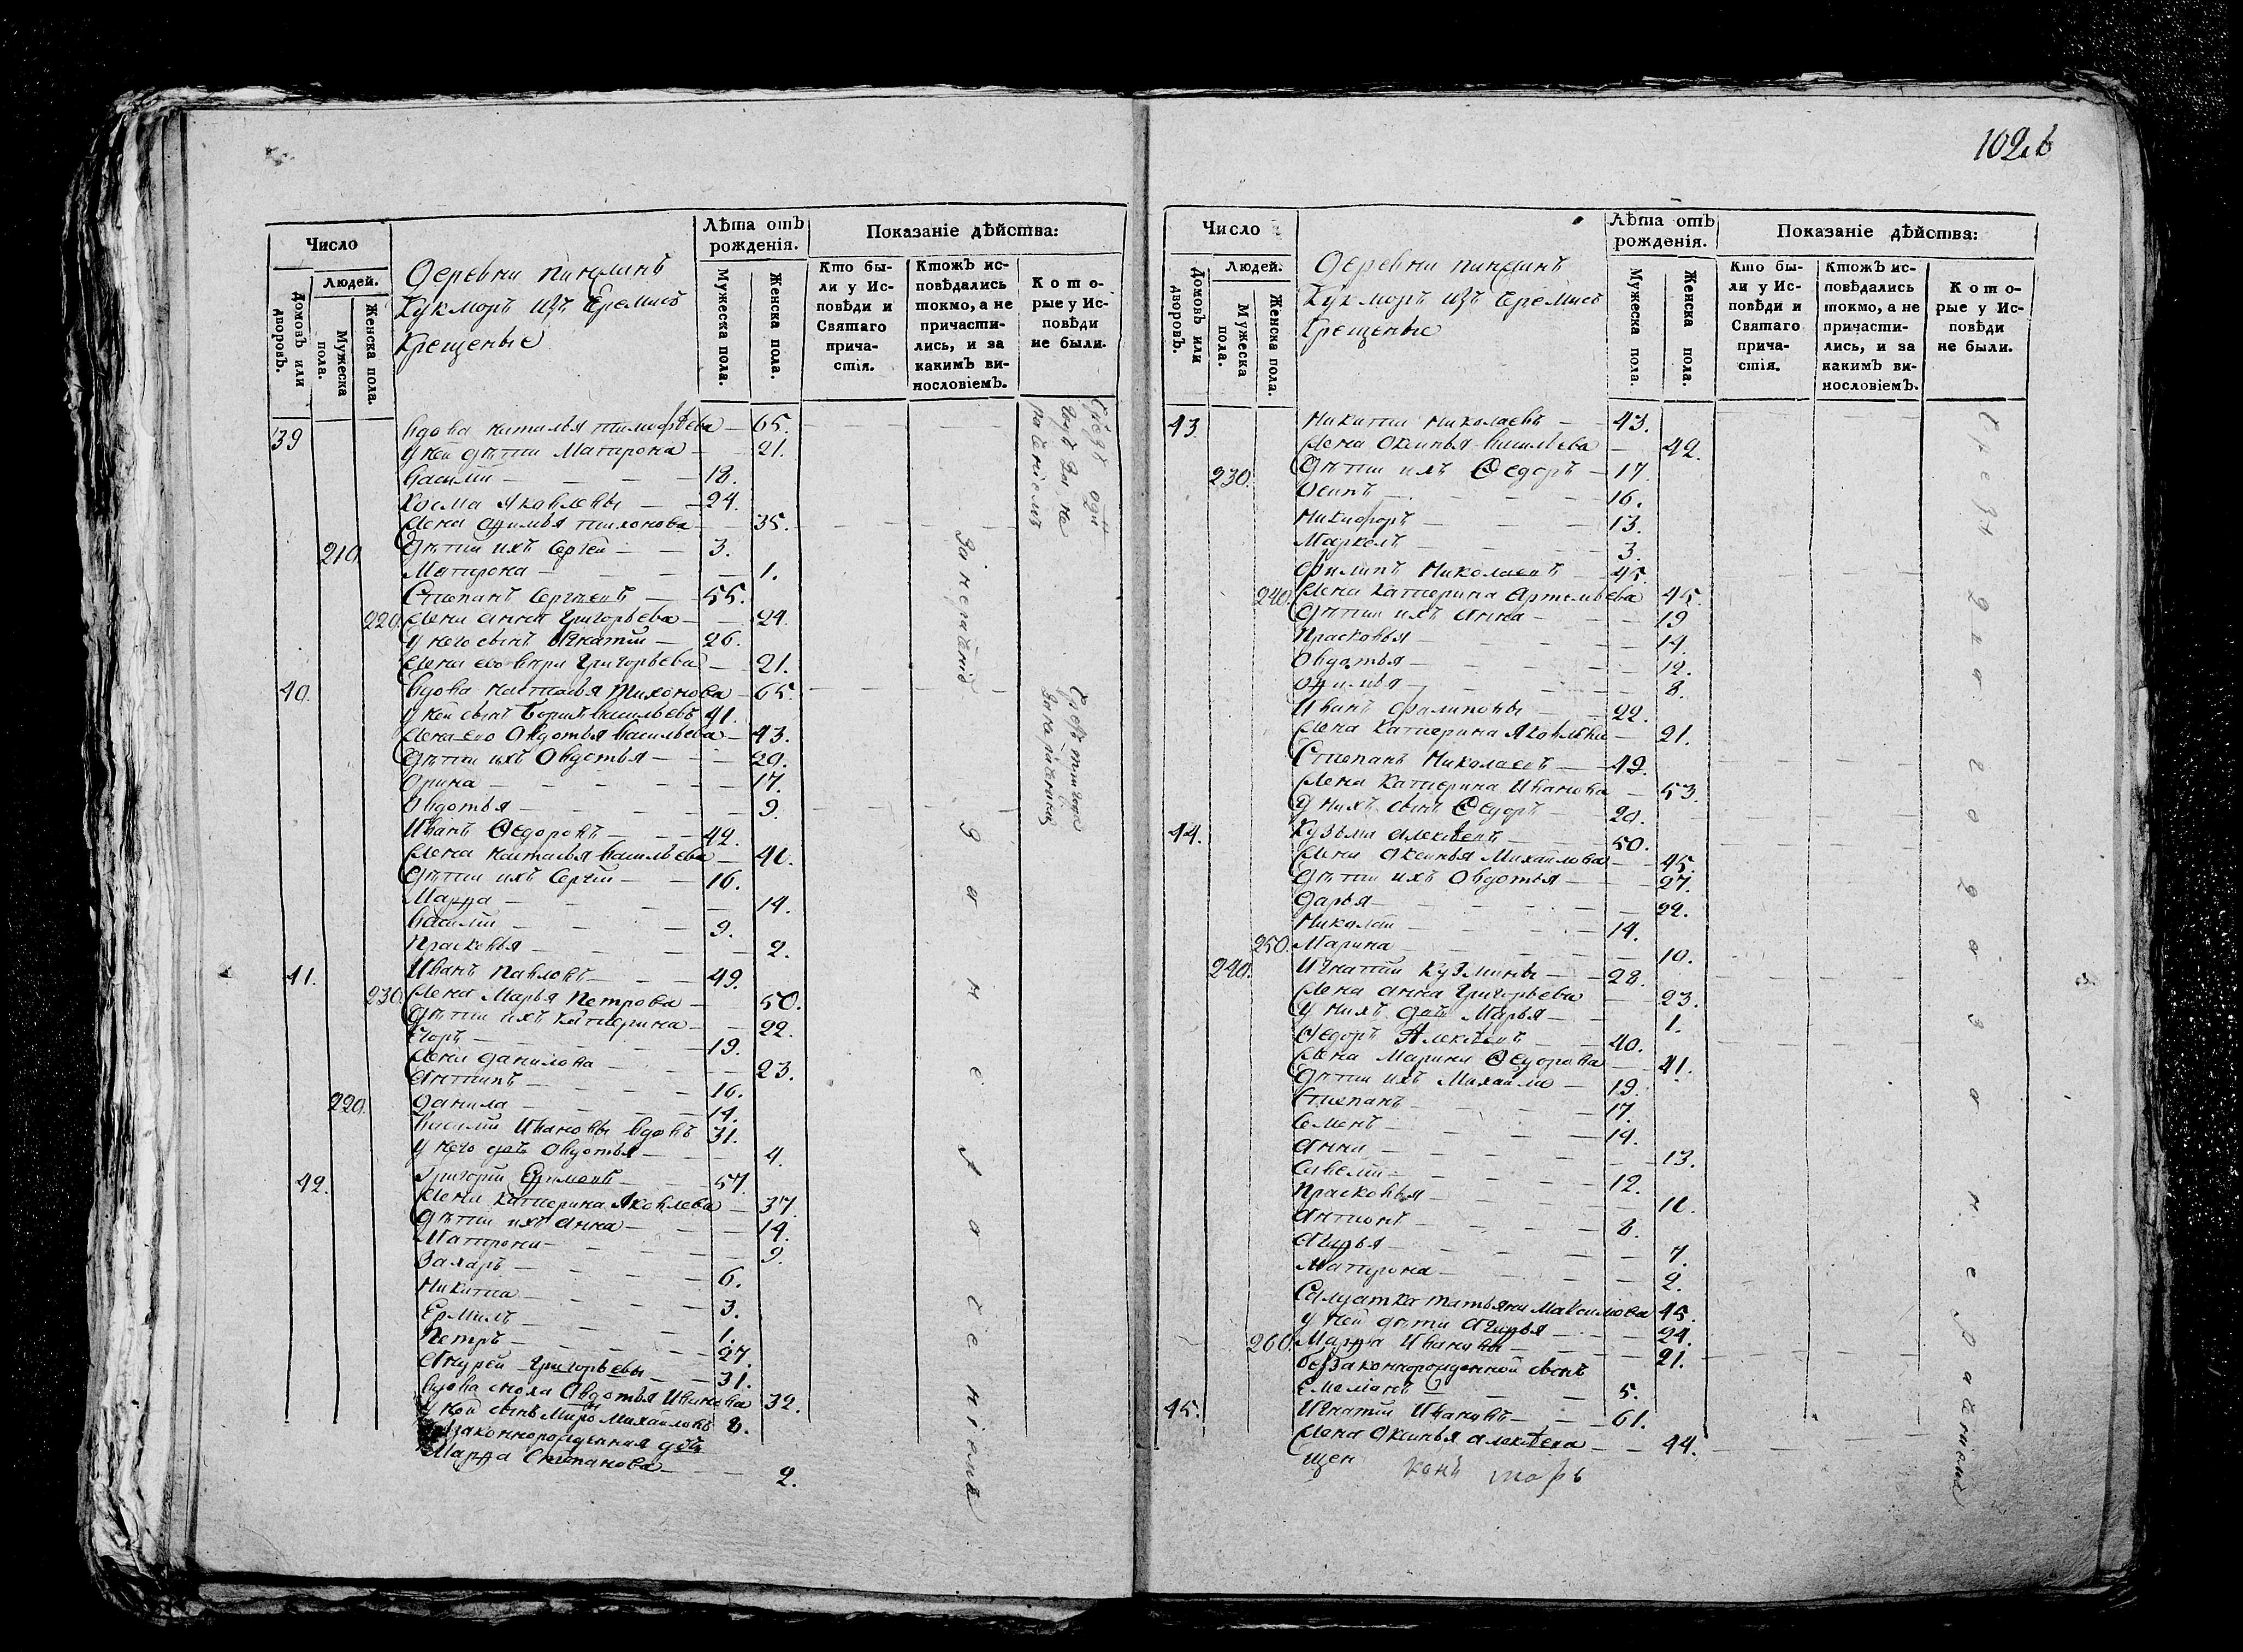 102
Число
Людей.
Домовъ или дворовъ.
Мужеска пола.
Женска пола.
Деревни
Кукморъ изъ Черемисъ
Крещеные
Лѣта отъ рожденія.
Мужеска пола.
Женска пола.
Показаніе дѣйства:
Кто были у Исповѣди и Святаго причастія.
Ктожъ исповѣдались токмо, а не причастились, и за какимъ винословіемъ.
Которые у Исповѣди не были.
39 Вдова Наталья Тимофѣева — 65.
У ней дѣти Матрона — 21.
Василій — 18.
Козма Яковлевы — 24.
Жена Тихонова — 35.
210. Дѣти ихъ Сергей — 3.
Матрона — 1.
Степанъ Сергѣевъ — 55.
220. Жена Анна Григорьева — 24.
У него сынъ Игнатій — 26.
Жена его Григорьева — 21.
40. Вдова Наталья Тихонова — 65.
У ней сынъ Борисъ Васильевъ 41.
Жена его Овдотья Васильева — 43.
Дѣти ихъ Овдотья — 20.
Орина — 17.
Овдотья — 9.
Иванъ Ѳедоровъ — 42.
Жена Наталья Васильева — 40.
Дѣти ихъ Сергій — 16.
Марфа — 14.
Василій — 9.
Прасковья — 2.
41. Иванъ Павловъ — 49.
230. Жена Марья Петрова — 50.
Дѣти ихъ Катерина — 22.
Егоръ — 19.
Жена Данилова — 23.
Антипъ — 16.
220. Данила — 14.
Василій Ивановы вдовъ 31.
У него дочь Овдотья — 4.
42. Григорій Ефимовъ — 57.
Жена Катерина Яковлева — 37.
Дѣти ихъ Анна — 14.
Матрона — 9.
Захаръ — 6.
Никита — 3.
Ермилъ — 1.
Петръ — 27.
Андрей Григорьевы — 31.
Вдова сноха Овдотья Иванова 32.
У ней сынъ Михайловъ 8.
Незаконнорожденная дочь
Марфа Степанова — 2.
За нераченіе
за нераченіемъ
Число
Людей.
Домовъ или дворовъ.
Мужеска пола.
Женска пола.
Деревни
Кукморъ изъ Черемисъ
Крещеные
Лѣта отъ рожденія.
Мужеска пола.
Женска пола.
Показаніе дѣйства:
Кто были у Исповѣди и Святаго причастія.
Ктожъ исповѣдались токмо, а не причастились, и за какимъ винословіемъ.
Которые у Исповѣди не были.
43. Никита Николаевъ — 43.
Жена Оксинья Васильева — 42.
230. Дѣти ихъ Ѳедоръ — 17.
Осипъ — 16.
Никифоръ — 13.
Маркелъ — 3.
Филипъ Николаевъ — 45.
240. Жена Катерина Артемьева 45.
Дѣти ихъ Анна — 19
Прасковья — 14.
Овдотья — 12.
Офимья — 8.
Иванъ Филиповы — 22.
Жена Катерина Яковлева — 21.
Степанъ Николаевъ — 49.
Жена Катерина Иванова — 53.
У нихъ сынъ Ѳедоръ — 20.
44. Кузьма Алексѣевъ — 50.
Жена Оксинья Михайлова — 45.
Дѣти ихъ Овдотья — 27.
Дарья — 22.
Николай — 14.
250. Марина — 10.
240. Игнатій Кузмины — 28.
Жена Анна Григорьева — 23.
У нихъ дочь Марья — 1.
Ѳедоръ Алексѣевъ — 40.
Жена Марина Ѳедорова — 41.
Дѣти ихъ Михайла — 19.
Степанъ — 17.
Семенъ — 14.
Анна — 13.
Савелій — 12.
Прасковья — 10.
Антонъ — 8.
Агафья — 7.
Матрона — 2.
Салдатка Татьяна Максимова 45.
У ней дѣти Агафья — 24.
260. Марфа Ивановы — 21.
беззаконнорожденной сынъ
Емеліанъ — 5.
45. Игнатій Ивановъ — 61.
Жена Оксинья Алексѣева — 44.
щен
чрезъ два года за нераченіемъ